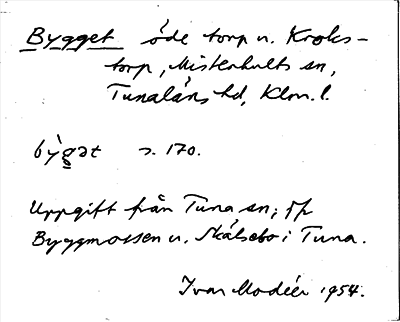 Bygget öde torp u. Kroks-
torp, Misterhults sn,
Tunaläns hd, Klm. l.
bỳgət s. 170.
Uppgift från Tuna sn; jfr
Byggmossen u. Skälsebo i Tuna.
Ivar Modéer 1954.